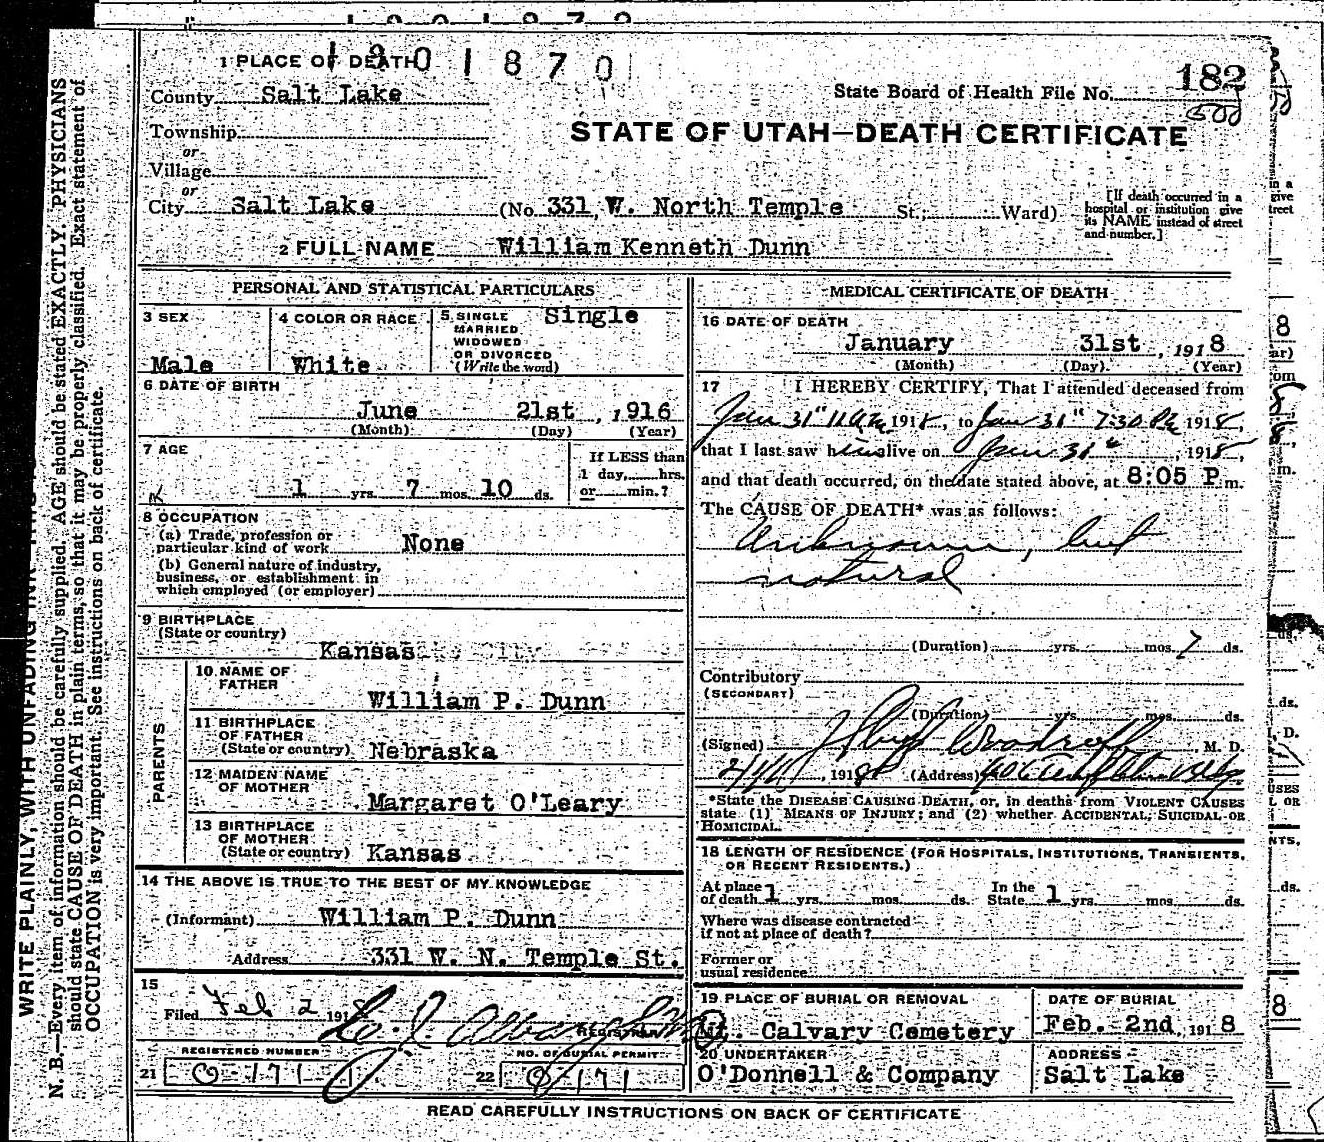 1 PLACE OF DEATH
1901870
County Salt Lake
State Board of Health File No. 182
Township
or
Village
or
STATE OF UTAH—DEATH CERTIFICATE
City Salt Lake (No. 331 W. North Temple St.; Ward)
[If death occurred in a hospital or institution give its NAME instead of street and number.]
2 FULL NAME William Kenneth Dunn
PERSONAL AND STATISTICAL PARTICULARS
3 SEX Male
4 COLOR OR RACE White
5 SINGLE MARRIED WIDOWED OR DIVORCED (Write the word) Single
6 DATE OF BIRTH
June 21st, 1916
(Month) (Day) (Year)
7 AGE
1 yrs. 7 mos. 10 ds.
If LESS than 1 day, hrs. or min.?
8 OCCUPATION
(a) Trade, profession or particular kind of work None
(b) General nature of industry, business, or establishment in which employed (or employer)
9 BIRTHPLACE
(State or country) Kansas City
PARENTS
10 NAME OF FATHER William P. Dunn
11 BIRTHPLACE OF FATHER (State or country) Nebraska
12 MAIDEN NAME OF MOTHER Margaret O'Leary
13 BIRTHPLACE OF MOTHER (State or country) Kansas
14 THE ABOVE IS TRUE TO THE BEST OF MY KNOWLEDGE
(Informant) William P. Dunn
Address 331 W. N. Temple St.
15
Filed Feb 2 191
REGISTRAR
REGISTERED NUMBER
21 0-171
NO. OF BURIAL PERMIT
22 0/171
MEDICAL CERTIFICATE OF DEATH
16 DATE OF DEATH
January 31st, 1918
(Month) (Day) (Year)
17 I HEREBY CERTIFY, That I attended deceased from
Jan 31" 11 a.m. 1918, to Jan 31" 7:30 P.M. 1918,
that I last saw him alive on Jan 31", 1918,
and that death occurred, on the date stated above, at 8:05 P.m.
The CAUSE OF DEATH* was as follows:
Unknown, but
natural
(Duration) yrs. mos. 7 ds.
Contributory
(SECONDARY)
(Duration) yrs. mos. ds.
(Signed) Woodruff M. D.
, 1918 (Address)
*State the DISEASE CAUSING DEATH, or, in deaths from VIOLENT CAUSES
state (1) MEANS OF INJURY; and (2) whether ACCIDENTAL, SUICIDAL OR
HOMICIDAL.
18 LENGTH OF RESIDENCE (FOR HOSPITALS, INSTITUTIONS, TRANSIENTS,
OR RECENT RESIDENTS.)
At place of death 1 yrs. mos. ds. In the State 1 yrs. mos. ds.
Where was disease contracted
if not at place of death?
Former or
usual residence
19 PLACE OF BURIAL OR REMOVAL
Mt. Calvary Cemetery
DATE OF BURIAL
Feb. 2nd, 1918
20 UNDERTAKER
O'Donnell & Company
ADDRESS
Salt Lake
READ CAREFULLY INSTRUCTIONS ON BACK OF CERTIFICATE
N. B.—Every item of information should be carefully supplied. AGE should be stated EXACTLY. PHYSICIANS
should state CAUSE OF DEATH in plain terms, so that it may be properly classified. Exact statement of
OCCUPATION is very important. See instructions on back of certificate.
WRITE PLAINLY, WITH UNFADING INK